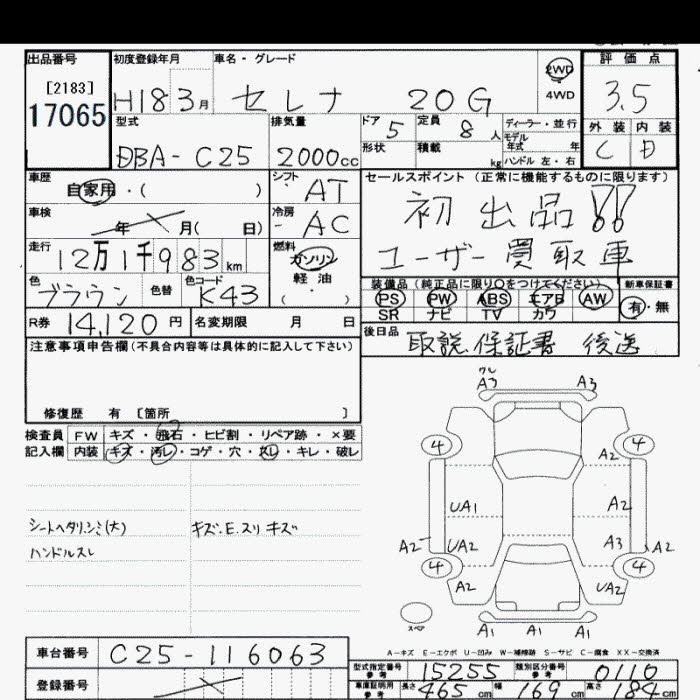 出品番号 初度登録年月 車名・グレード 2WD 4WD 評価点
[2183]
17065 H18 3月 セレナ 20G 3.5
型式 排気量 ドア 5 定員 8 人 ディーラー・並行 外装 内装
形状 積載 kg モデル年式 年 ハンドル 左・右
DBA-C25 2000cc C D
車歴 自家用・( ) シフト AT セールスポイント (正常に機能するものに限ります)
車検 年 月( 日) 冷房 AC 初出品!!
走行 12万1千983km 燃料 ガソリン 軽油 ( ・ ) ユーザー買取車
色 ブラウン 色替 色コード K43 装備品(純正品に限り〇をつけてください) 新車保証書
PS PW ABS エアB AW 有・無
SR ナビ TV カワ
R券 14,120円 名変期限 月 日 後日品 取説、保証書 後送
注意事項申告欄(不具合内容等は具体的に記入して下さい)
修復歴 有 [箇所 ]
検査員 FW キズ・飛石・ヒビ割・リペア跡・×要
記入欄 内装 キズ・汚レ・コゲ・穴・スレ・キレ・破レ
シートヘタリ、シミ(大) キズ.E.スリキズ
ハンドルスレ
A3 A3
4 4
A2
UA1 A2
A2 UA2 A3 A2
4 4
A2 UA2
スペア A1 A1 A1
A-キズ E-エクボ U-凹み W-補修跡 S-サビ C-腐食 XX-交換済
車台番号 C25-116063
型式指定番号 参考 15255 類別区分番号 参考 0110
登録番号 車庫証明用 参考 長さ 465cm 幅 169cm 高さ 184cm